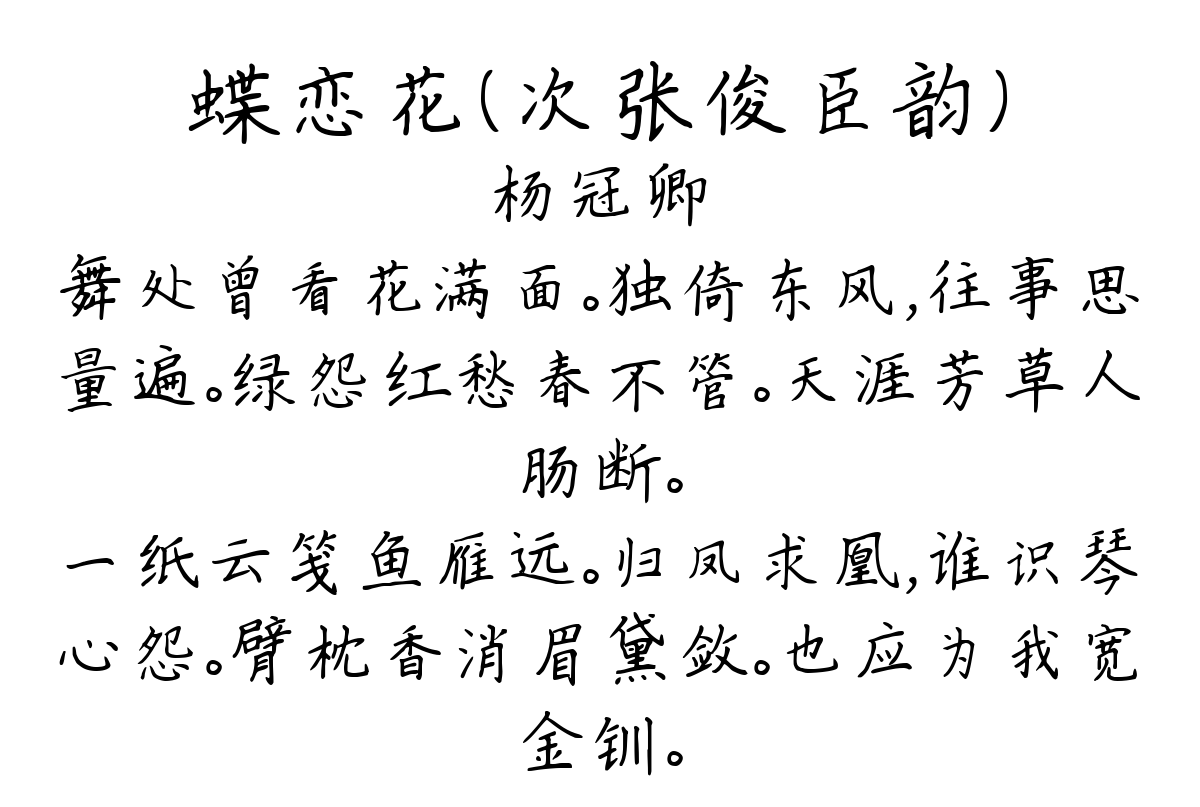 蝶恋花(次张俊臣韵)
杨冠卿
舞处曾看花满面。独倚东风,往事思
量遍。绿怨红愁春不管。天涯芳草人
肠断。
一纸云笺鱼雁远。归凤求凰,谁识琴
心怨。臂枕香消眉黛敛。也应为我宽
金钏。